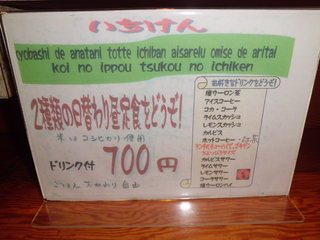 いちけん
kyobashi de anatani totte ichiban aisarelu omise de aritai
koi no ippou tsukou no ichiken
2種類の日替わり昼定食をどうぞ!
米はコシヒカリ使用
ドリンク付 700円
ごはん おかわり 自由
お好きなドリンクをどうぞ!
烟ウーロン茶
アイスコーヒー
コカ・コーラ
ライムスカッシュ
レモンスカッシュ
カルピス
ホットコーヒー・紅茶
カルピスサワー
ライムサワー
レモンサワー
コーラサワー
烟ウーロンハイ